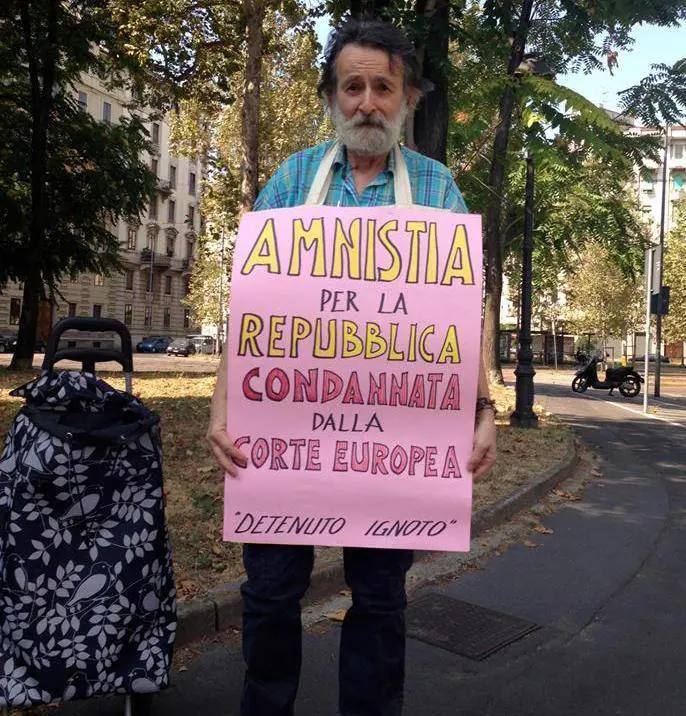 AMNISTIA
PER LA
REPUBBLICA
CONDANNATA
DALLA
CORTE EUROPEA
"DETENUTO IGNOTO"